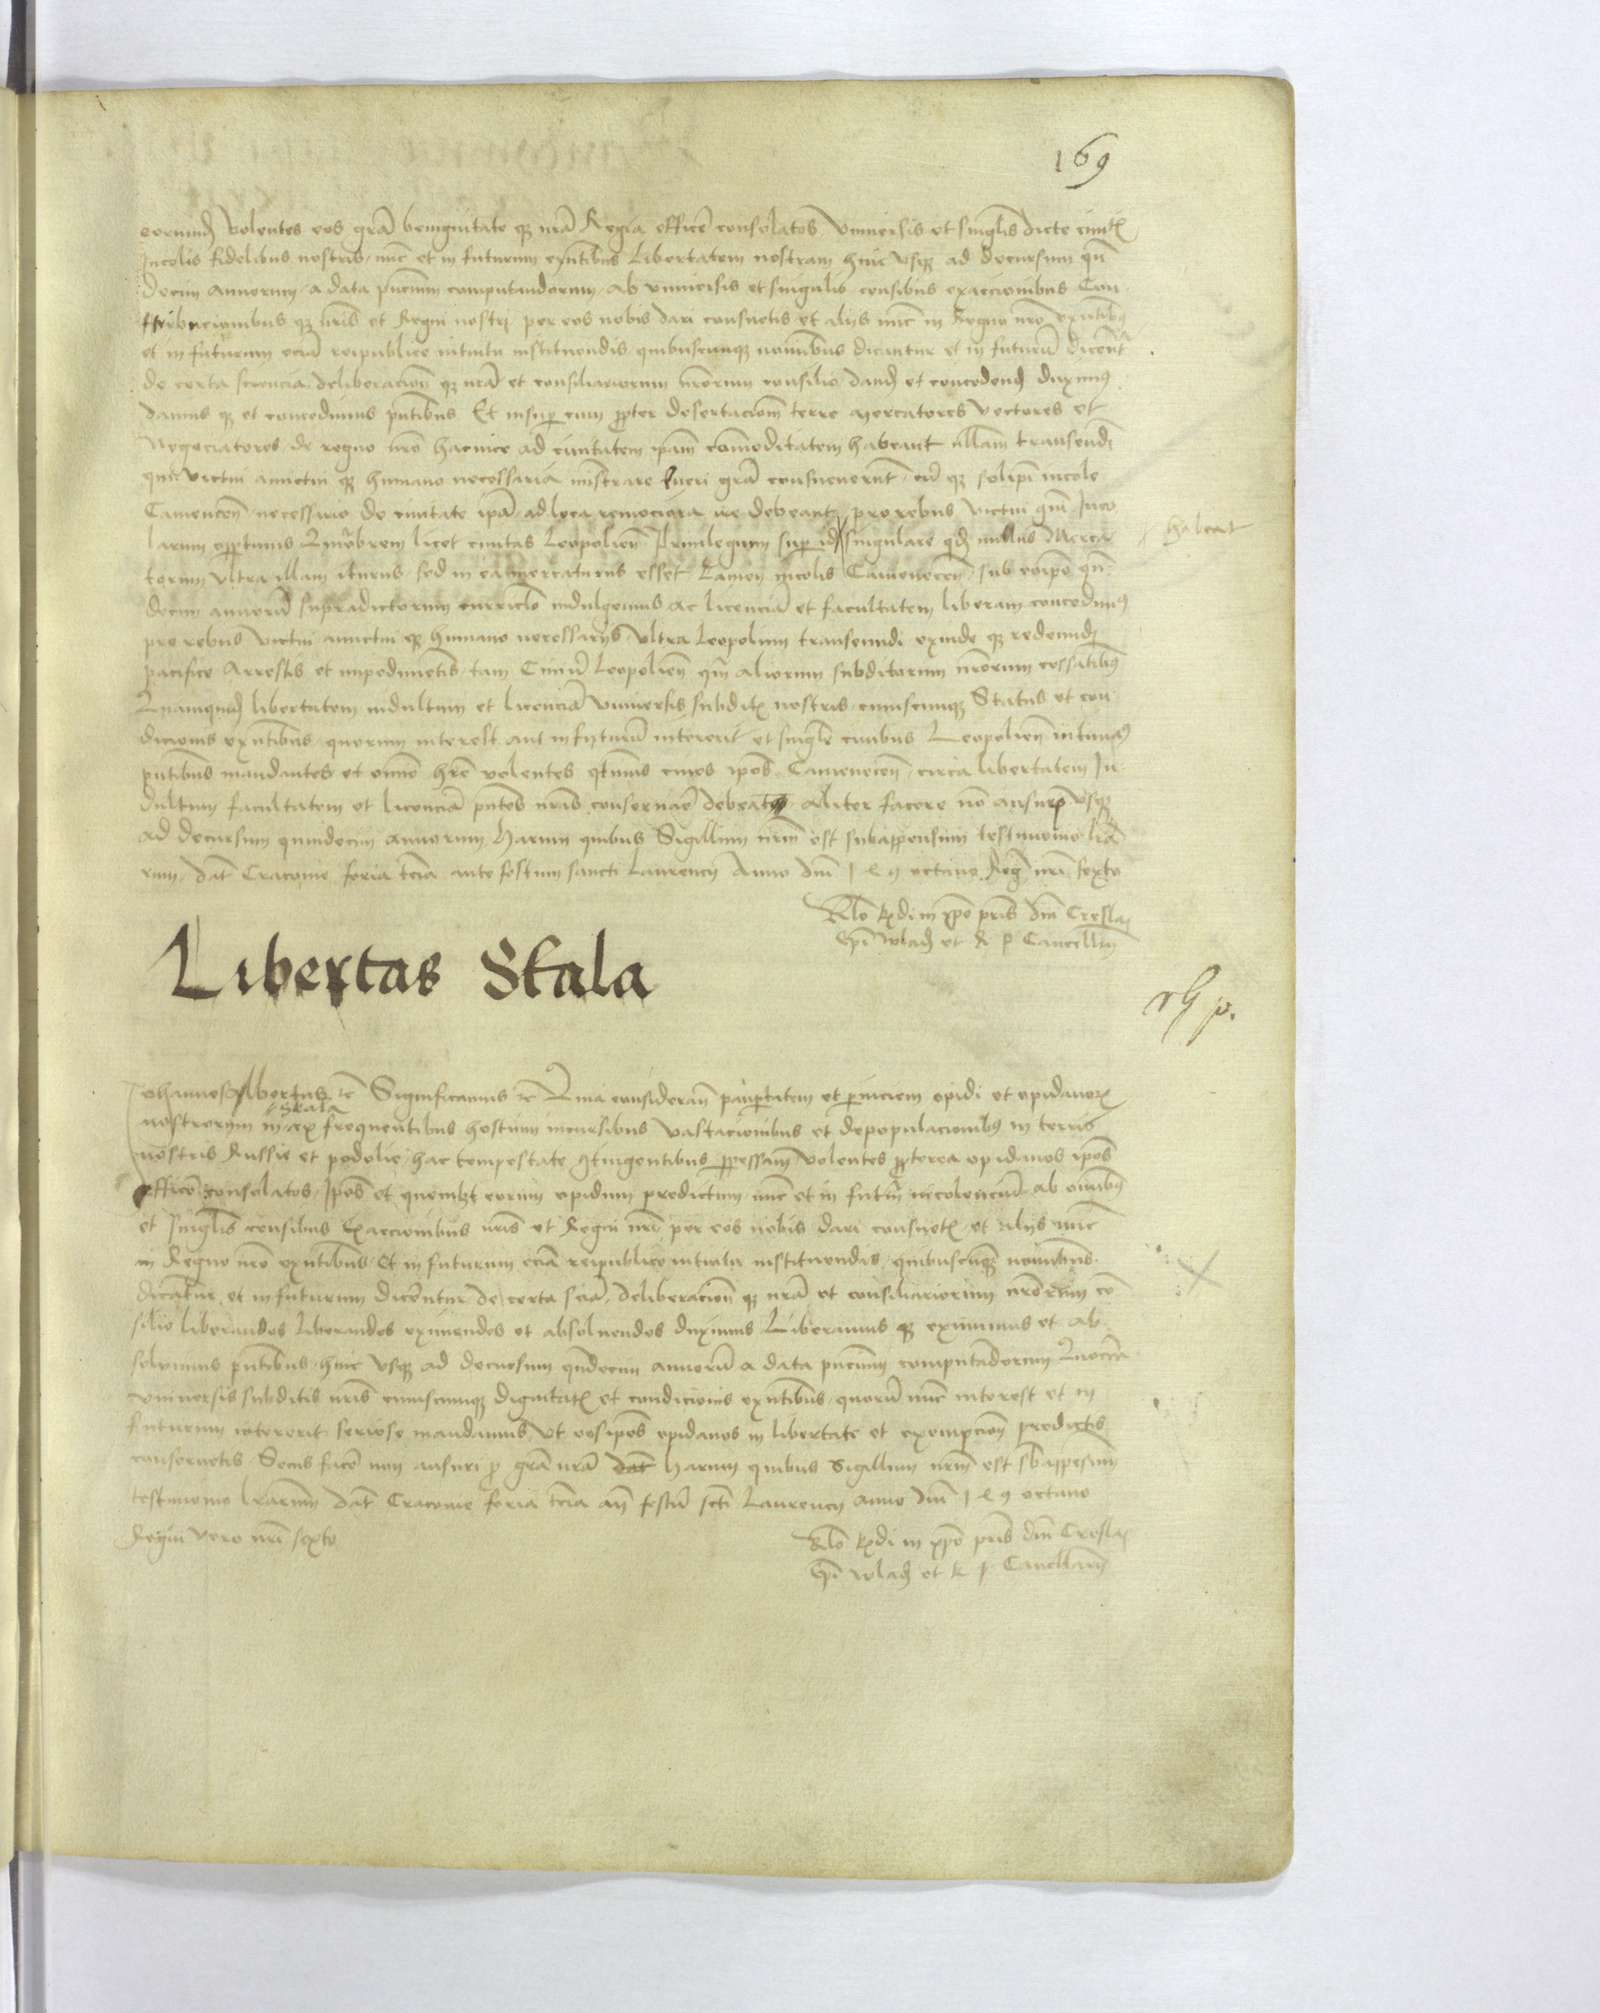 169
eorund Volentes eos gra benignitate q nra Regia efficē consolatos Vniuersis et singlis dicte ciuitis
Incolis fidelibus nostris nūc et in futurum exntibus Libertatem nostram hinc vsq ad decursum qn
decim annorum a data pncium computandorum ab vniuersis et singulis censibus exaccionibus Con
tribucionibus q nris et Regni nostri per eos nobis dari consuetis et alys nūc in Regno nrō exntibus
et in futurum eciā reipublice intuitu instituendis quibuscunq nominibus dicantur et in futurū dicent
de certa sciencia deliberacionē q nra et consiliariorum nrorum consilio dand et concedend duximus
damus q et concedimus pntibus Et insup cum ppter desertacionē terre Mercatores Vectores et
Negociatores de regno nrō hac vice ad ciuitatem ipam comoditatem habeant nllam transeundi
qui victui amictui q humano necessaria mistrare lucri gra consueuerunt incole
Camencen necessario de ciuitate ipa ad loca remociora ire debeant pro rebus victui Inco
larum opptunis Quābrem licet ciuitas Leopolien Priuilegium sup id singulare qd nullus Merca
habeat
torum vltra illam iturus sed in ea mercaturus esset tamen incolis Camenecen sub eoipo qn
decim annorū supradictorum curriclo indulgemus ac licenciā et facultatem liberam concedimus
pro rebus victui amictui q humano necessarys vltra Leopolim transeundi exinde q redeundi
pacifice Arrestis et impedimētis tam Ciuiū Leopolien qm aliorum subditorum nrorum cessatibus
Quamquid libertatem indultum et licenciā Vniuersis subditis nostris cuiuscunq Status et con
dicionis exntibus quorum interest aut in futurū intererit et singlr ciuibus Leopolien intimus
pntibus mandantes et omnō hre volentes qtinus ciues ipos Camenecen circa libertatem In
dultum facultatem et licenciā pntes nras conseruare debeatis aliter facere nō ausuri vsq
ad decursum quindecim annorum Harum quibus Sigillum nrm est subappensum testimonio lra
rum dat Cracouie feria tcia ante festum sancti Laurency Anno dni 1 4 9 octauo Reg nri sexto
Rlo Rdi in xpo pris dni Creslai
Epi wlad et R P Cancellarij
Libertas Skala
Iohannes Albertus etc Significamus etc Quia consideran paupertatem et pniciem opidi et opidanorum
nostrorum in Skala ex frequentibus hostium incursibus vastacionibus et depopulacionibus in terris
nostris Russie et podolie hac tempestate contingentibus ppessam volentes ppterea opidanos ipos
efficē consolatos Ipos et quemlzt eorum opidum predictum nūc et in futurū incolencium ab omnibus
et singlis censibus Exaccionibus nris et Regni nri per eos nobis dari consuetis et alys nūc
in Regno nrō exntibus Et in futurum eciā reipublice intuitu instituendis quibuscunq nominibus
dicantur et in futurum dicentur de certa sciā deliberacionē q nra et consiliariorum nrorum cō
silio liberandos liberandos eximendos et absoluendos duximus Liberamus q eximimus et ab
soluimus pntibus hinc vsq ad decursum qndecim annorū a data pncium computandorum Quocirca
vniuersis subditis nris cuiuscunq dignitatis et condicionis exntibus quorū nūc interest et in
futurum intererit seriose mandamus vt eos ipos opidanos in libertate et exempcionē predictis
conseruetis Secus facē non ausuri p gra nra dat Harum quibus Sigillum nrm est sbappensum
testimonio lrarum dat Cracouie feria tcia an festū scti Laurency anno dni 1 4 9 octauo
Regni vero nri sexto
Rlo Rdi in xpo pris dni Creslai
Epi wlad et R P Cancellarij